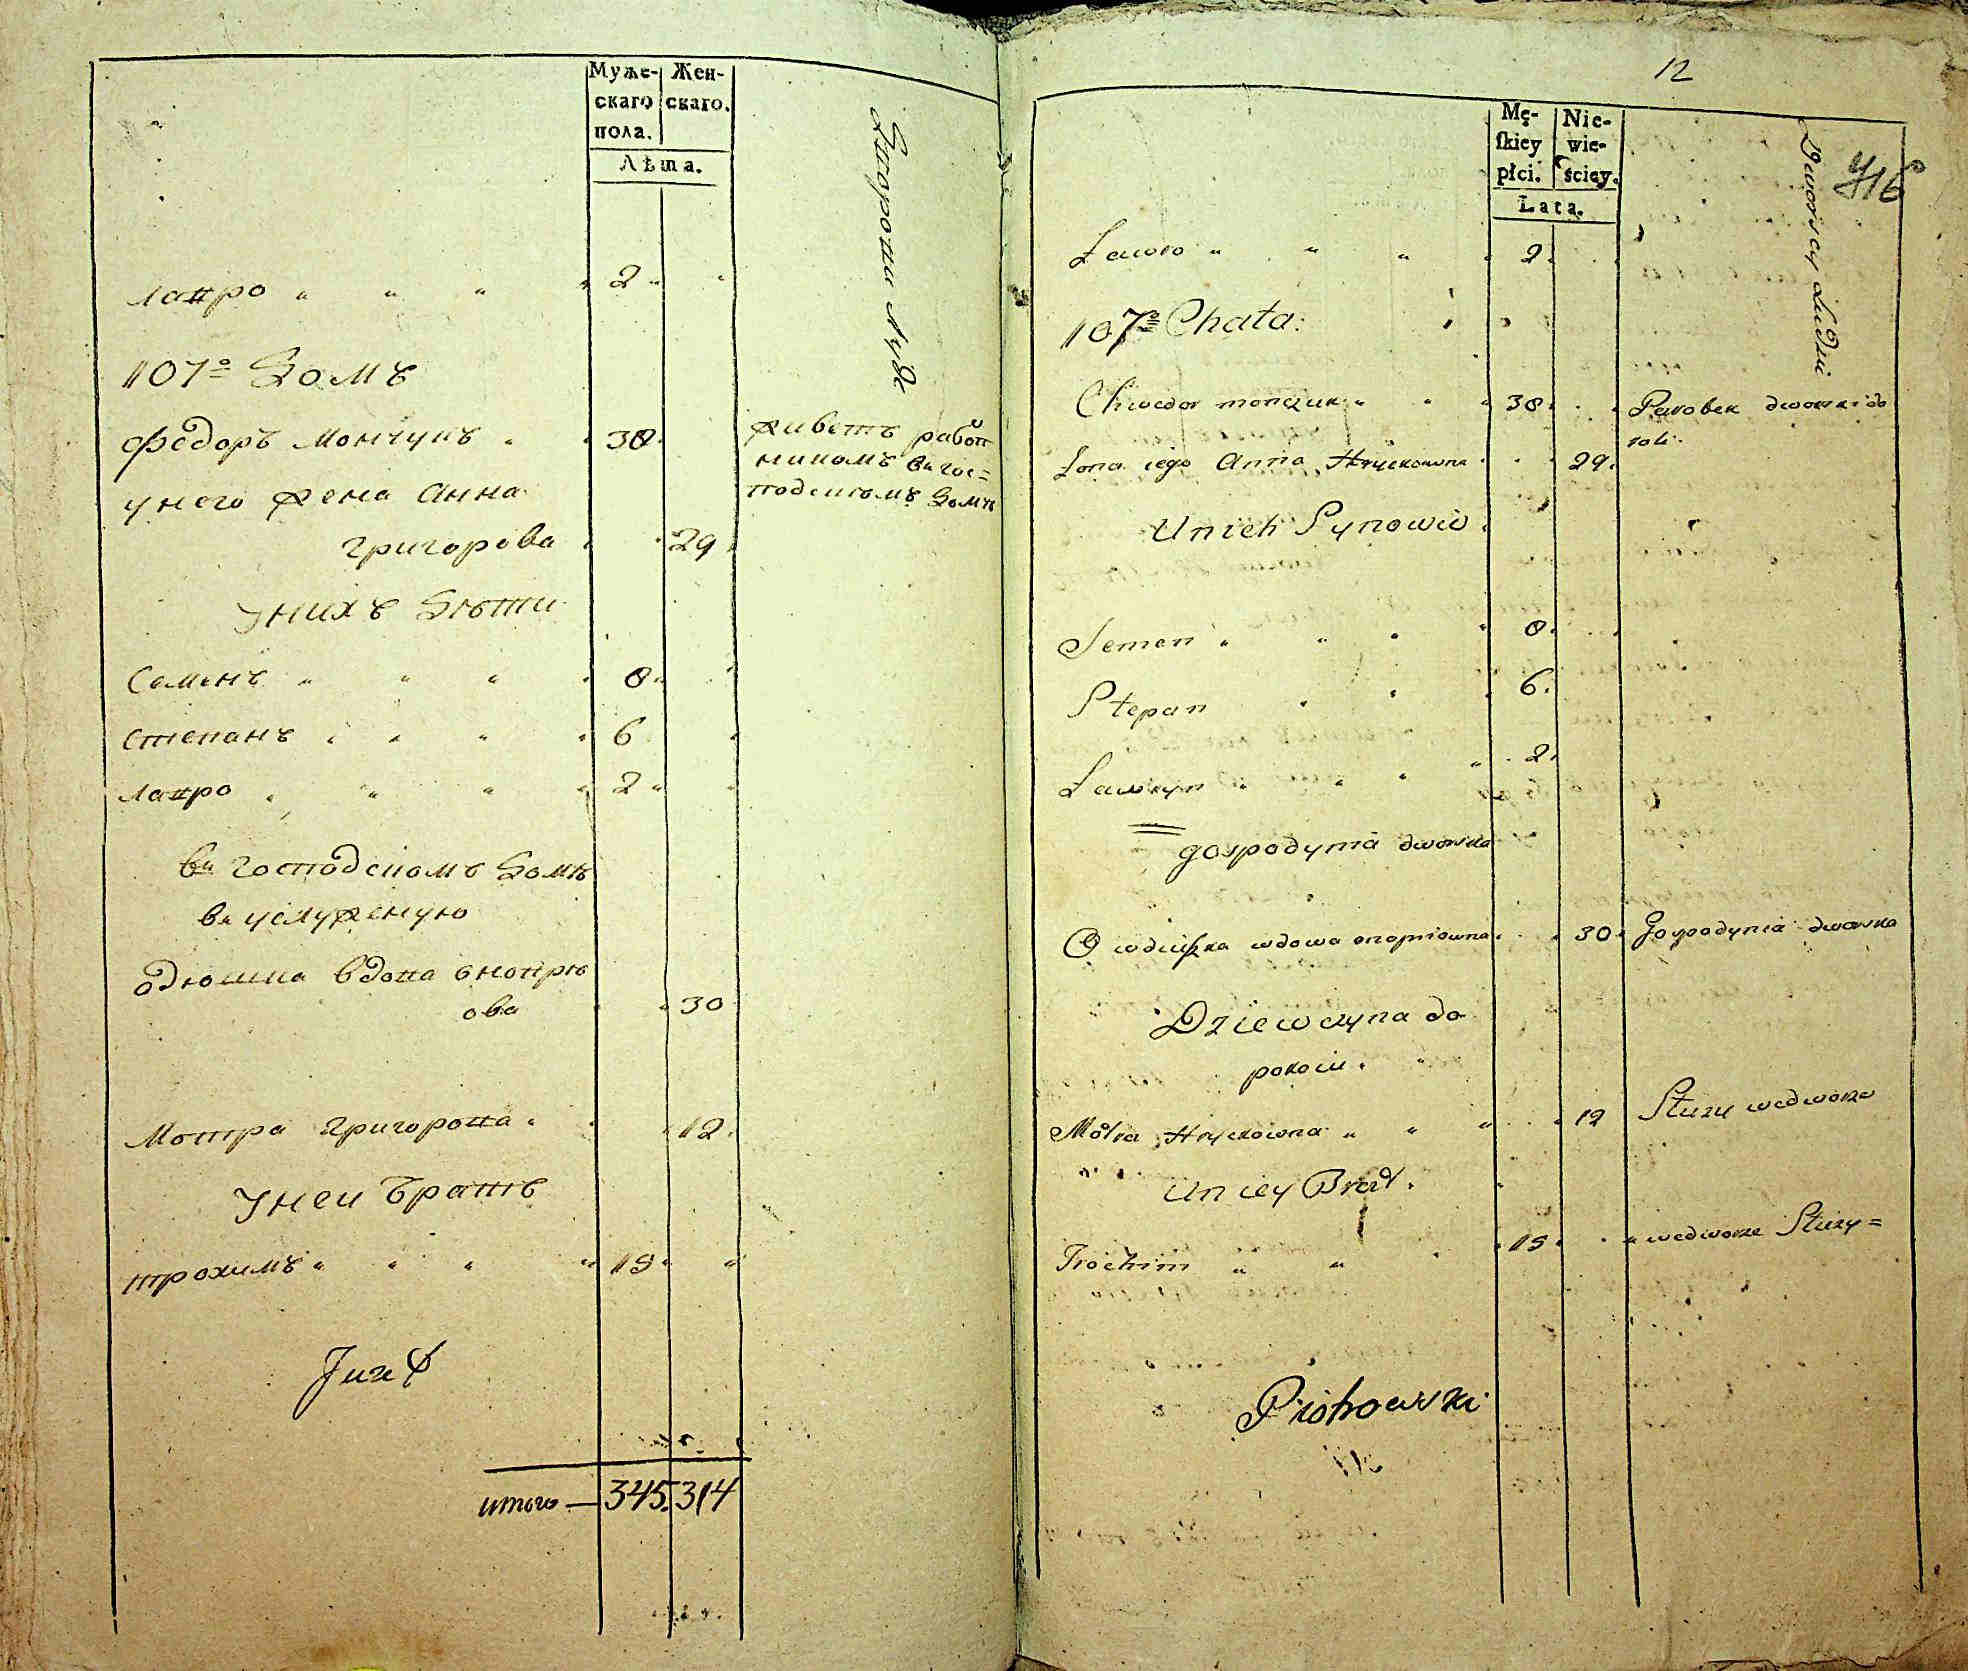 Муже-
скаго
пола.
Жен-
скаго.
Лѣта.
Лавро " " " 2
107º Домъ
Федоръ Мончукъ 38
живетъ работ
никомъ въ гос=
подскомъ домѣ
у него жена Анна
Григорова 29
У нихъ дѣти
Семенъ " " " 8
Степанъ " " " 6
Лавро " " " 2
въ господскомъ домѣ
въ услуженую
вдова
ова 30
Мотра Григорова 12
У неи братъ
Трохимъ " " " 15
итого — 345. 314
12
Mę-
ſkiey
płci.
Nie-
wie-
ściey.
Lata.
Dworscy Ludzi
Ławro " " " 2
107º Chata:
Chwedor Monczuk " " 38 Parobek dworski do
roli
Żona iego Anna Hryckowna 29
U nich Synowie
Semen " " " 8
Stepan 6
" " " 2
gospodynia dworska
wdowa 30 Gospodynia dworska
Dziewczyna do
pokoiu.
Motra Hryckowna " " " 12 Służy wedworze
U niey Brat.
Trochim " " 15 " wedworze Służy=
Piotrowski